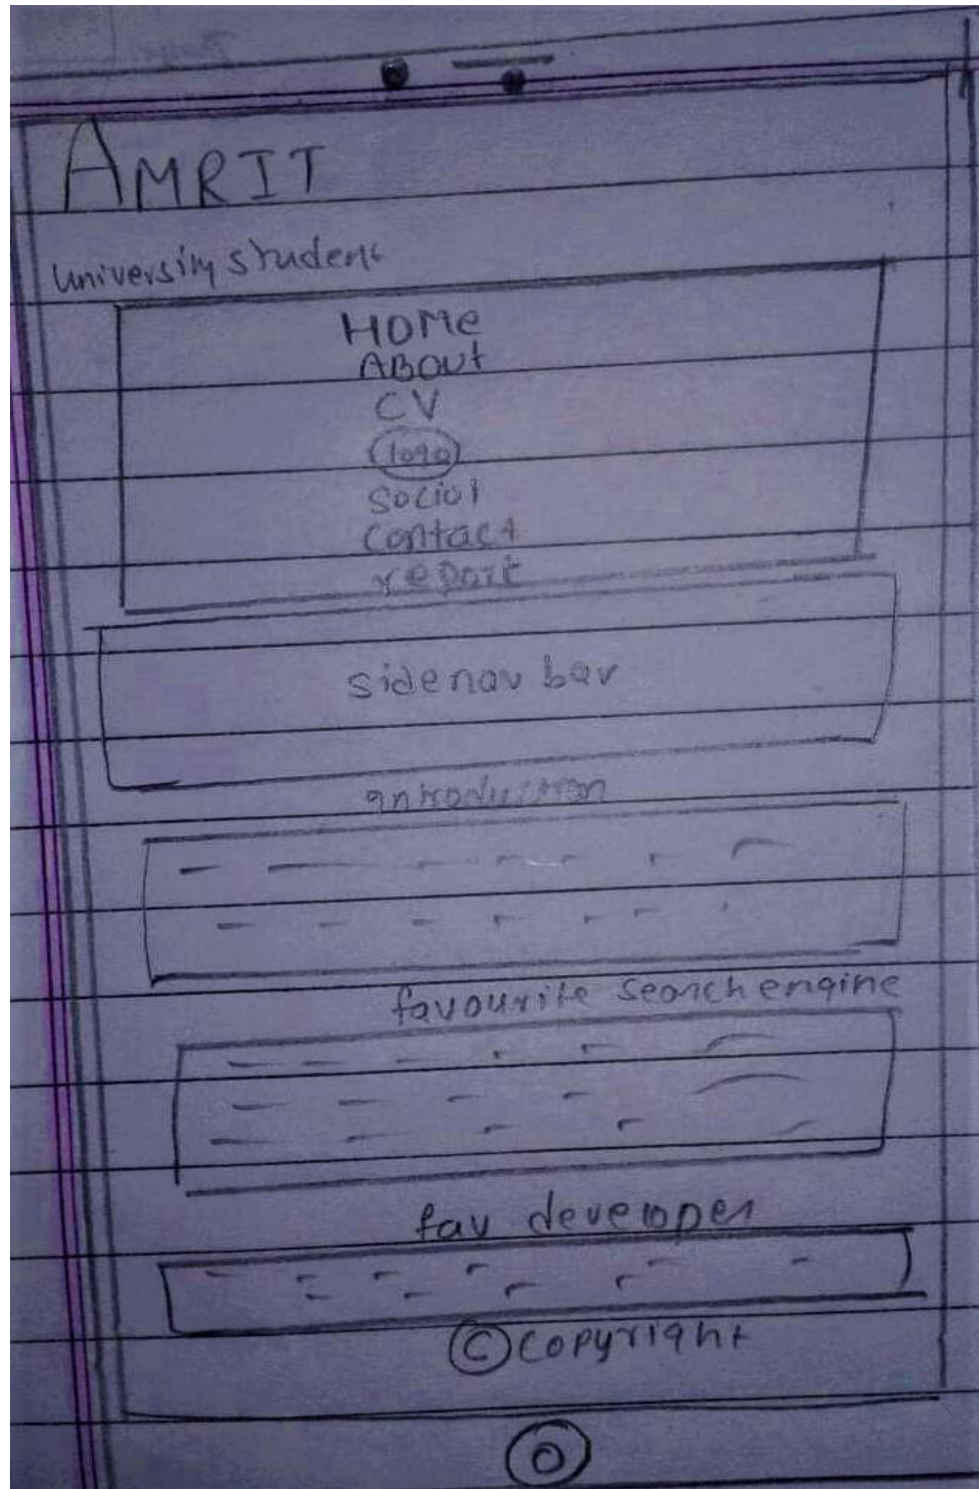 AMRIT
university student
HOMe
ABOUt
CV
logo
social
contact
repart
sidenav bar
introduction
favourite search engine
fav developer
© copyright